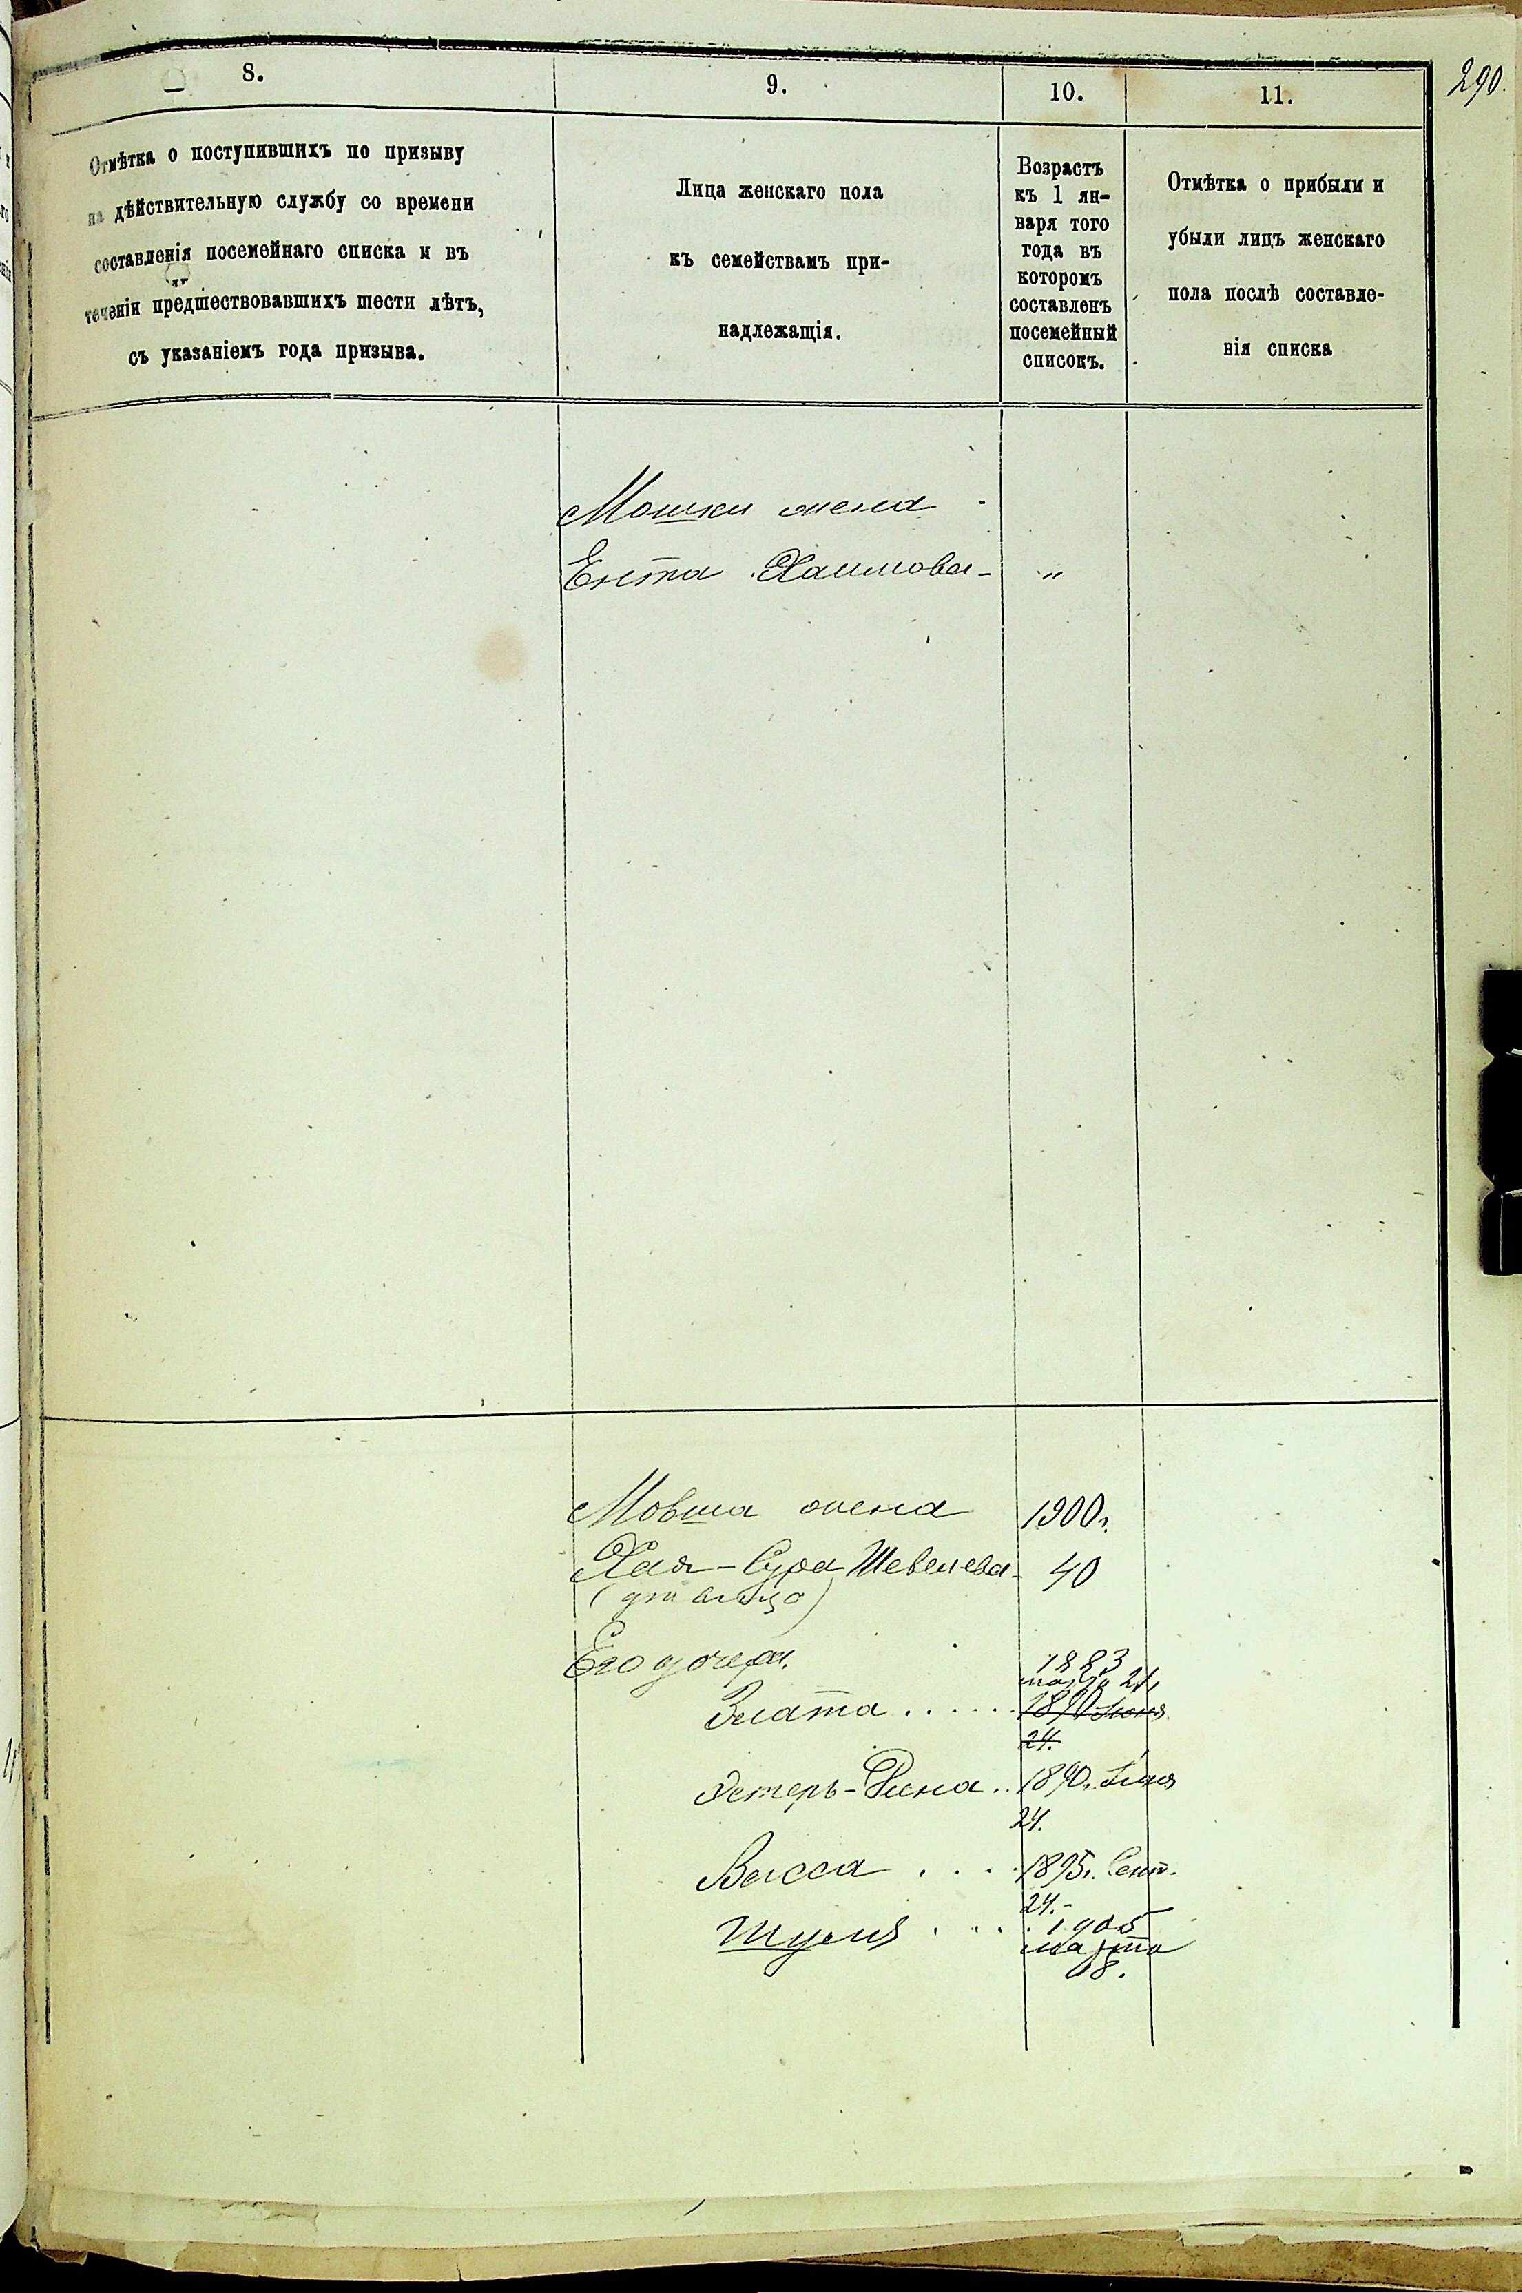 290.
8.
9.
10.
11.
Отмѣтка о поступившихъ по призыву
на дѣйствительную службу со времени
составленія посемейнаго списка и въ
теченіи предшествовавшихъ шести лѣтъ,
съ указаніемъ года призыва.
Лица женскаго пола
къ семействамъ при-
надлежащія.
Возрастъ
къ 1 ян-
варя того
года въ
которомъ
составленъ
посемейный
списокъ.
Отмѣтка о прибыли и
убыли лицъ женскаго
пола послѣ составле-
нія списка
Мошки жена
Ента Хаимова - "
Мовша жена 1900 г.
Хая-Сура Шевелева 40
Его дочери. 1883
24,
Злата . . . . . 1890 Іюня
24.
Эстеръ-Рина .. 1890 г. Іюня
24.
Высса . . . . 1895 г. Сент.
24.-
Шуля . . . . 1905
марта
18.